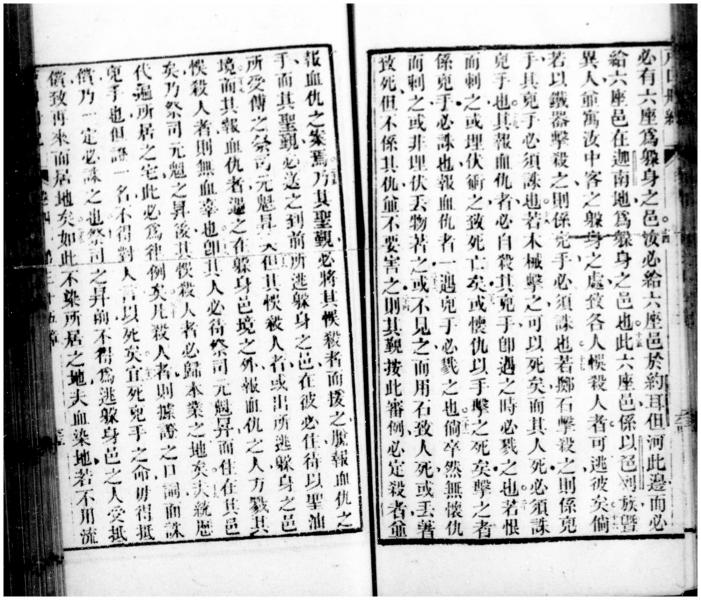 必有六座爲躱身之邑汝必給六座邑於約耳但河此邊而必
給六座邑在迦南地爲躱身之邑也此六座邑係以色列族暨
異人爺寓汝中客之躱身之處致各人悞殺人者可逃彼矣倘
若以鐵器擊殺之則係兇手必須誅也若擲石擊殺之則係兇
手其兇手必須誅也若木械擊之可以死矣而其人死必須誅
兇手也其報血仇者必自殺其兇手卽遇之時必戮之也若恨
而刺之或埋伏衝之致死亡矣或懷仇以手擊之死矣擊之者
係兇手必誅也報血仇者一遇兇手必戮之也倘卒然無懷仇
而刺之或非埋伏丟物若之或不見之而用石致人死或丟著
致死但不係其仇並不要害之則其覲按此審例必定殺者並
報血仇之案焉乃其聖覲必將其悞殺者而援之脫報血仇之
手而其聖覲必送之到前所逃躱身之邑在彼必住待以聖油
所受傅之祭司元魁昇天但其悞殺人者或出所逃躱身之邑
境而其報血仇者遇之在躱身邑境之外報血仇之人方戮其
悞殺人者則無血辜也卽其人必待祭司元魁昇而住在其邑
矣乃祭司元魁之昇後其悞殺人者必歸本業之地矣夫統歷
代遍所居之宅此必爲律例矣凡殺人者則據證之口詞而誅
兇手也但證一名不得對人言以死矣宜死兇手之命毋得抵
償乃一定必誅之也祭司之昇前不得爲逃躱身邑之人受抵
償致再來而居地矣如此不染所居之地夫血染地若不用流